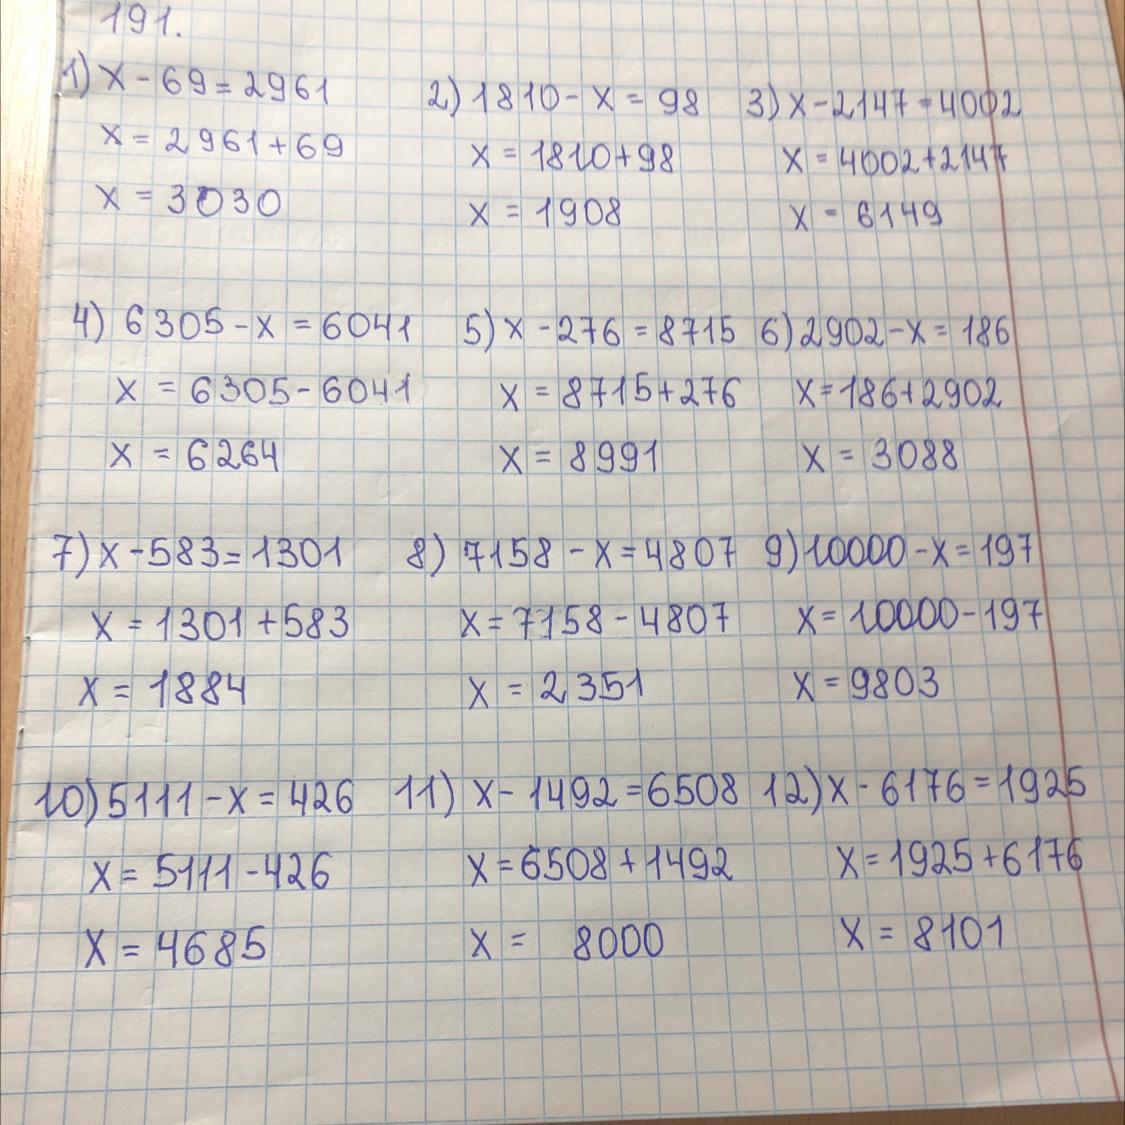 191.
1) x - 69 = 2961 2) 1810 - x = 98 3) x - 2147 = 4002
x = 2961 + 69 x = 1810 + 98 x = 4002 + 2147
x = 3030 x = 1908 x = 6149
4) 6305 - x = 6041 5) x - 276 = 8715 6) 2902 - x = 186
x = 6305 - 6041 x = 8715 + 276 x = 186 + 2902
x = 6264 x = 8991 x = 3088
7) x - 583 = 1301 8) 7158 - x = 4807 9) 10000 - x = 197
x = 1301 + 583 x = 7158 - 4807 x = 10000 - 197
x = 1884 x = 2351 x = 9803
10) 5111 - x = 426 11) x - 1492 = 6508 12) x - 6176 = 1925
x = 5111 - 426 x = 6508 + 1492 x = 1925 + 6176
x = 4685 x = 8000 x = 8101